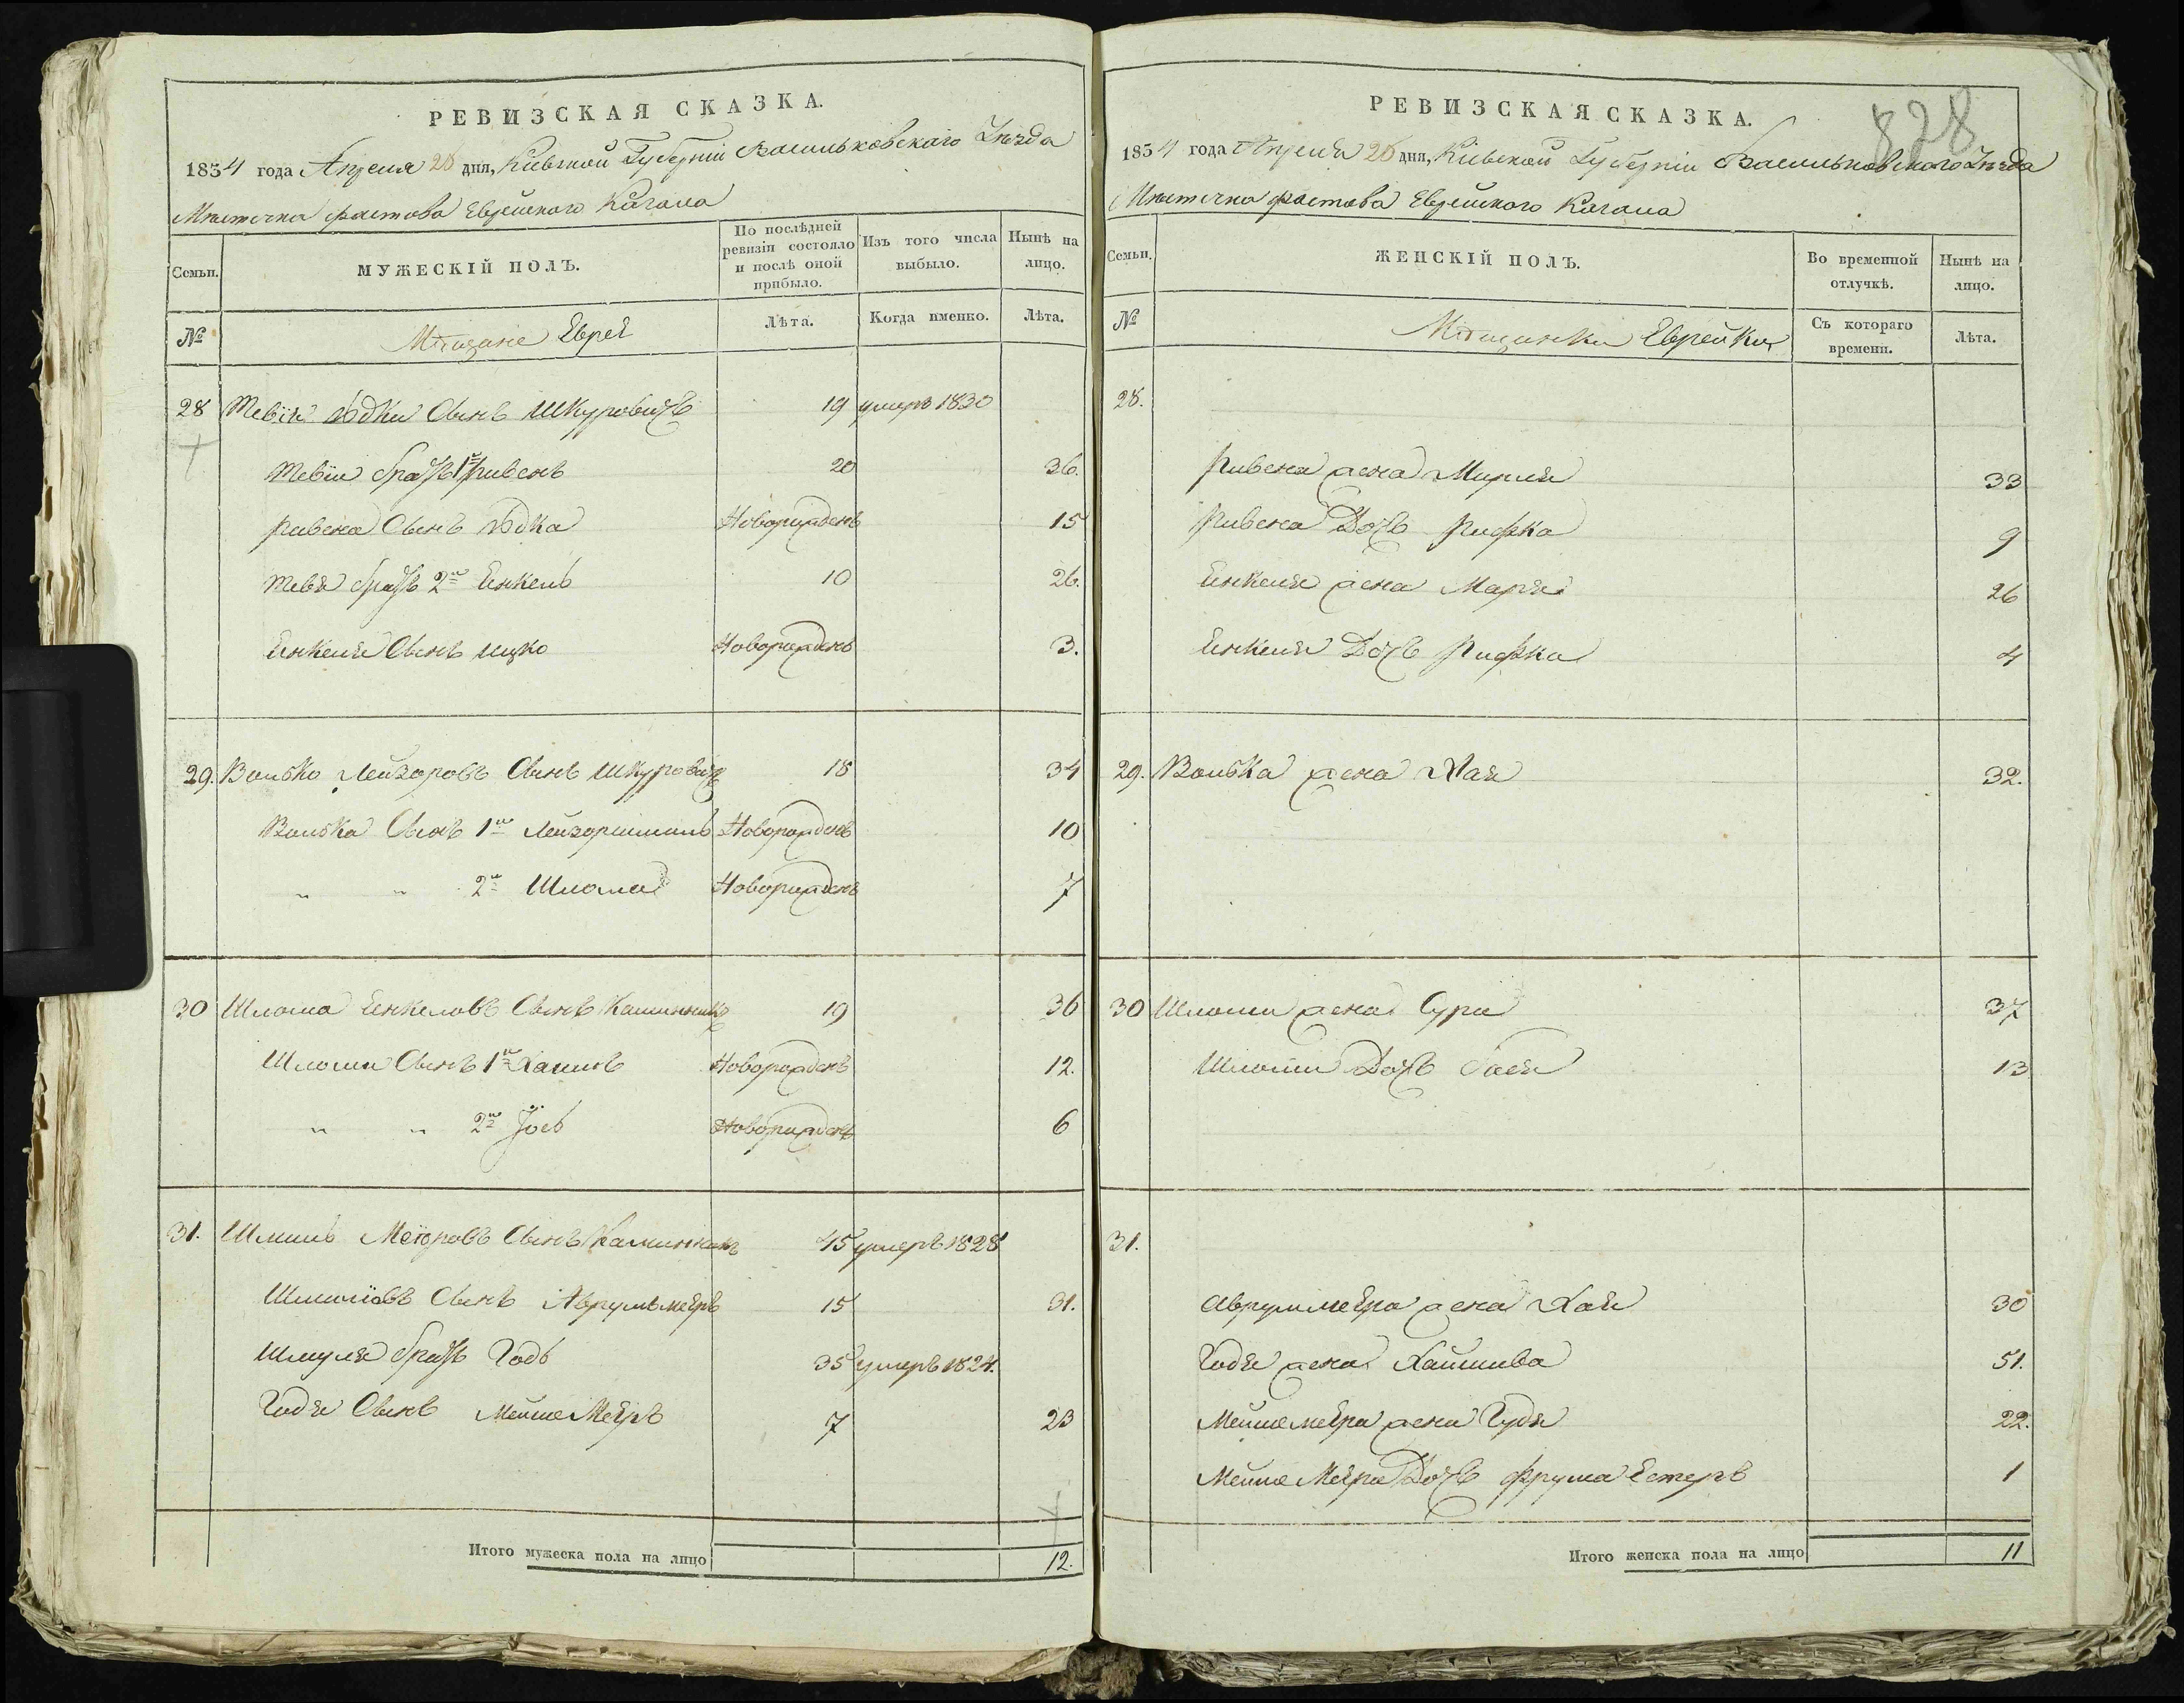 РЕВИЗСКАЯ СКАЗКА.
1834 года Апреля 20 дня, Кіевской Губерніи Васильковскаго Уѣзда
Мѣстечка фастова Еврейского Кагала
Семьи.
МУЖЕСКІЙ ПОЛЪ.
По послѣдней ревизіи состояло и послѣ оной прибыло.
Изъ того числа выбыло.
Нынѣ на лицо.
№
Мѣщане Евреѣ
Лѣта.
Когда именно.
Лѣта.
28 Тевія Юдки Сынъ Шкуровичъ 19 умеръ 1830
Тевіи братъ 1й Ривенъ 20 36.
Ривена Сынъ Юдка Новорожденъ 15
Тевя братъ 2й Енкель 10 26.
Енкеля Сынъ Ицко Новорожденъ 3.
29. Волько Лейзоровъ Сынъ Шкуровичъ 18 34
Волька Сынъ 1й Новорожденъ 10
" " 2й Шлома Новорожденъ 7
30 Шлома Енкеловъ Сынъ 19 36
Шломи Сынъ 1й Хаимъ Новорожденъ 12.
" " 2й Новорожденъ 6
31. Шмиль Меіоровъ Сынъ 45 умеръ 1828
Сынъ Аврумъ меѣръ 15 31.
Шмуля братъ Годь 35 умеръ 1824.
Годя Сынъ Мейше Меѣръ 7 23
Итого мужеска пола на лицо 12.
828
РЕВИЗСКАЯ СКАЗКА.
1834 года Апреля 20 дня, Кіевской Губерніи Васильковского Уѣзда
Мѣстечка фастова Еврейского Кагала
Семьи.
ЖЕНСКІЙ ПОЛЪ.
Во временной отлучкѣ.
Нынѣ на лицо.
№
Мѣщанки Еврейки
Съ котораго времени.
Лѣта.
28.
Ривена жена Мирля 33
Ривена Дочь Рифка 9
Енкеля жена Марья 26
Енкеля Дочь Рифка 4
29. Волька жена Хая 32.
30 Шломи жена Сура 37
Шломи Дочь Бася 13
31.
Авруммеѣра жена Хая 30
Годя жена 51.
Мейшемеѣра жена Гудя 22.
Мейше Меѣра Дочь Фрума Естеръ 1
Итого женска пола на лицо 11